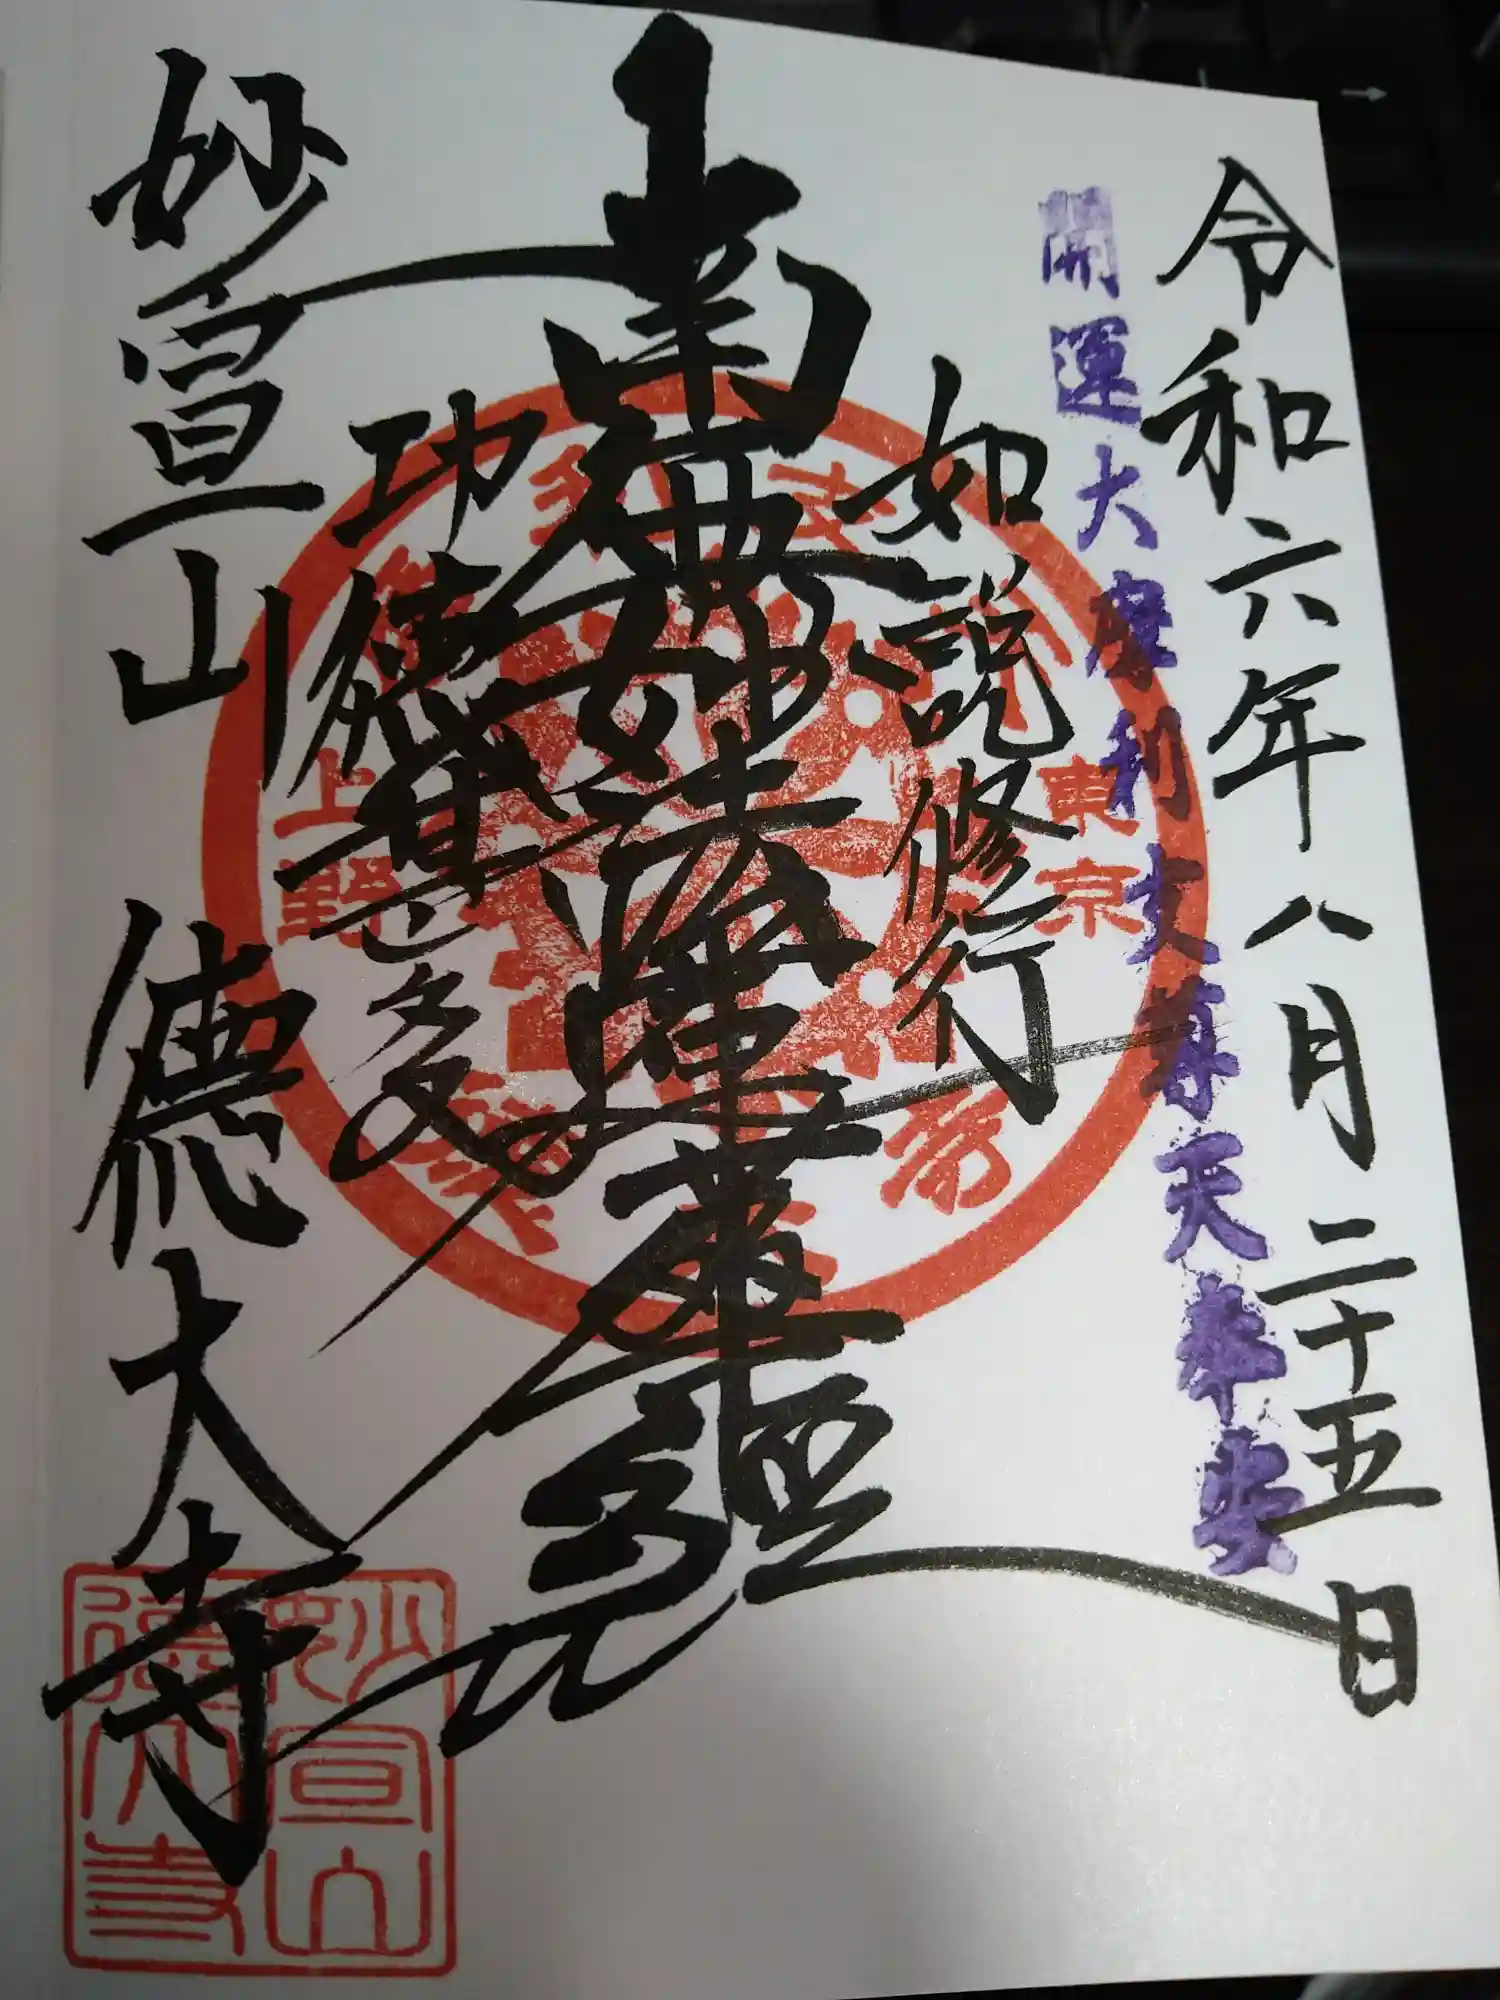 令和六年八月二十五日
開運大摩利支尊天奉安
如説修行
南無妙法蓮華經
功德 多
妙宣山 德大寺
東京
上野
妙宣山
德大寺